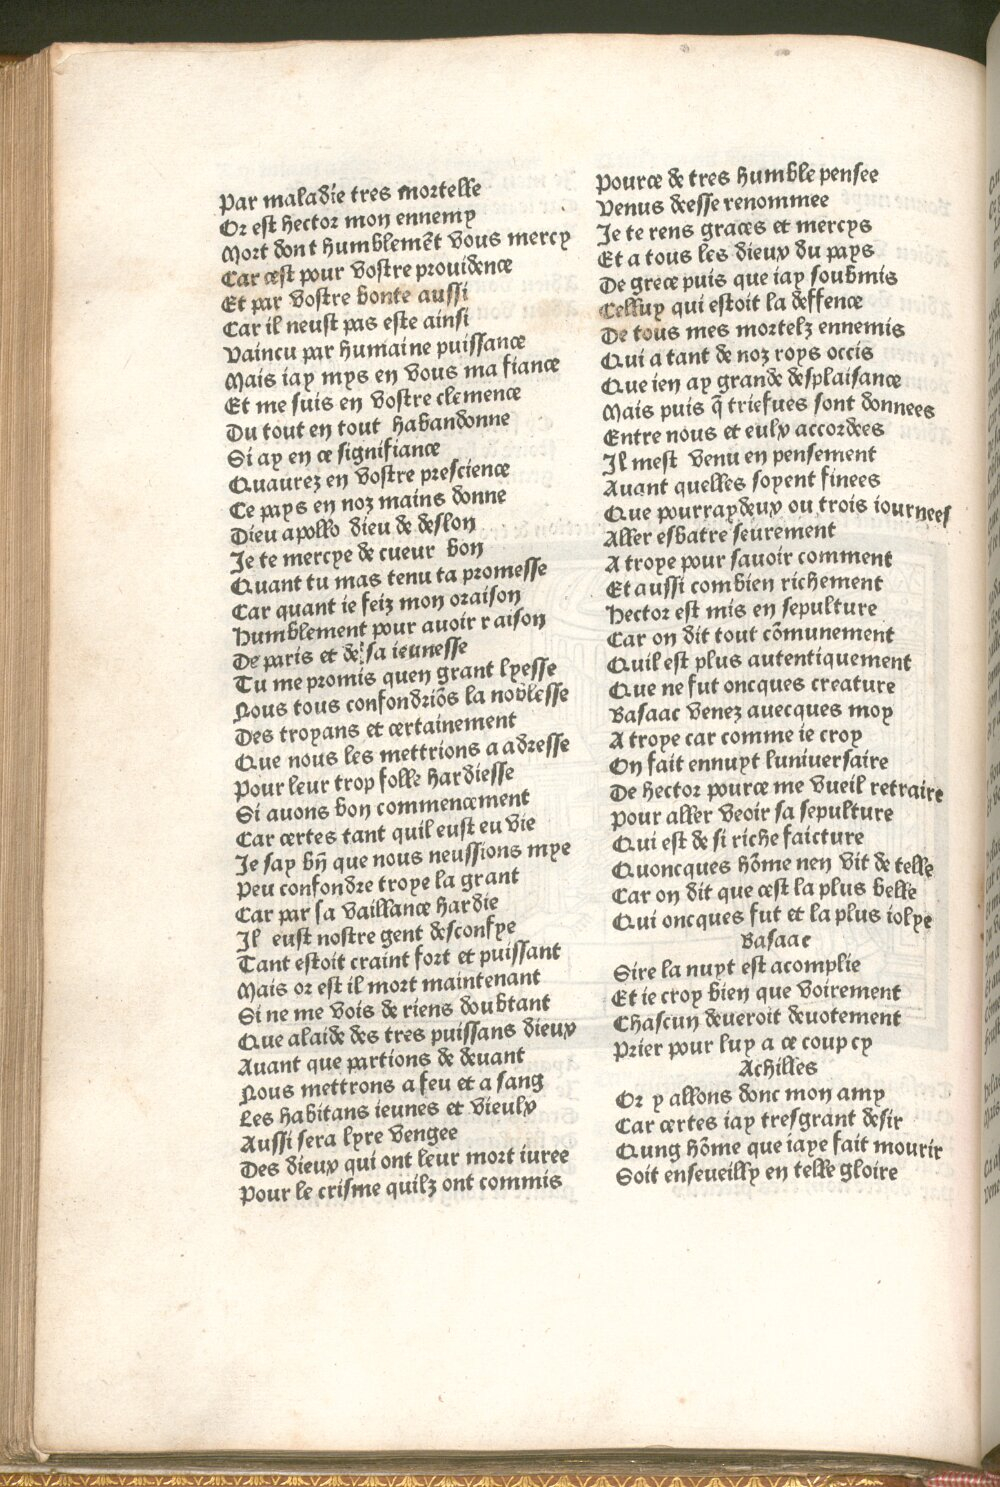 Par maladie tres mortelle
Or est hector mon ennemy
Mort dont humblemẽt vous mercy
Car cest pour vostre prouidence
Et par vostre bonte aussi
Car il neust pas este ainsi
Vaincu par humaine puissance
Mais iay mys en vous ma fiance
Et me suis en vostre clemence
Du tout en tout habandonne
Si ay en ce signifiance
Quaurez en vostre prescience
Ce pays en noz mains donne
Dieu apollo dieu de deslon
Je te mercye de cueur bon
Quant tu mas tenu ta promesse
Car quant ie feiz mon oraison
Humblement pour auoir raison
De paris et de sa ieunesse
Tu me promis quen grant lyesse
Nous tous confondriõs la noblesse
Des troyans et certainement
Que nous les mettrions a adresse
Pour leur trop folle hardiesse
Si auons bon commencement
Car certes tant quil eust eu vie
Je say bñ que nous neussions mye
Peu confondre troye la grant
Car par sa vaillance hardie
Il eust nostre gent desconfye
Tant estoit craint fort et puissant
Mais or est il mort maintenant
Si ne me vois de riens doubtant
Que alaide des tres puissans dieux
Auant que partions de deuant
Nous mettrons a feu et a sang
Les habitans ieunes et vieulx
Aussi sera lyre vengee
Des dieux qui ont leur mort iuree
Pour le crisme quilz ont commis
Pource de tres humble pensee
Venus deesse renommee
Je te rens graces et mercys
Et a tous les dieux du pays
De grece puis que iay soubmis
Celluy qui estoit la deffence
De tous mes mortelz ennemis
Qui a tant de noz roys occis
Que ien ay grande desplaisance
Mais puis q̃ triefues sont donnees
Entre nous et eulx accordees
Il mest venu en pensement
Auant quelles soyent finees
Que pourray deux ou trois iournees
Aller esbatre seurement
A troye pour sauoir comment
Et aussi combien richement
Hector est mis en sepulture
Car on dit tout cõmunement
Quil est plus autentiquement
Que ne fut oncques creature
Basaac venez auecques moy
A troye car comme ie croy
On fait ennuyt luniuersaire
De hector pource me vueil retraire
Pour aller veoir sa sepulture
Qui est de si riche faicture
Quoncques hõme nen vit de telle
Car on dit que cest la plus belle
Qui oncques fut et la plus iolye
Basaac
Sire la nuyt est acomplie
Et ie croy bien que voirement
Chascun deueroit deuotement
Prier pour luy a ce coup cy
Achilles
Or y allons donc mon amy
Car certes iay tresgrant desir
Qung hõme que iaye fait mourir
Soit enseueilly en telle gloire